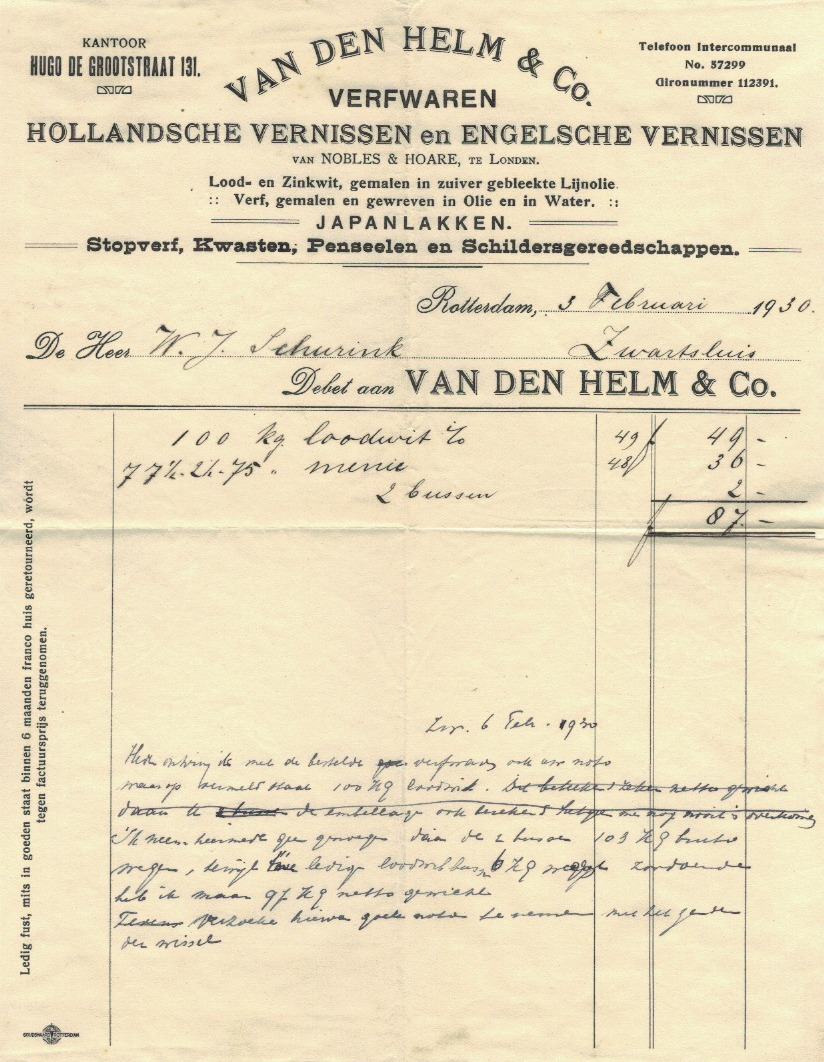 KANTOOR
HUGO DE GROOTSTRAAT 131.
VAN DEN HELM & Co.
Telefoon Intercommunaal
No. 57299
Gironummer 112391.
VERFWAREN
HOLLANDSCHE VERNISSEN en ENGELSCHE VERNISSEN
VAN NOBLES & HOARE, TE LONDEN.
Lood- en Zinkwit, gemalen in zuiver gebleekte Lijnolie.
:: Verf, gemalen en gewreven in Olie en in Water. ::
JAPANLAKKEN.
Stopverf, Kwasten, Penseelen en Schildersgereedschappen.
Rotterdam, 3 Februari 1930.
De Heer W. J. Schurink Zwartsluis
Debet aan VAN DEN HELM & Co.
100 kg loodwit 49 f 49 -
77½-2½-75 " menie 48 36 -
2 bussen 2 -
f 87 -
Ledig fust, mits in goeden staat binnen 6 maanden franco huis geretourneerd, wordt
tegen factuursprijs teruggenomen.
Zw. 6 Feb. 1930
ontving ik met de bestelde verfwaren ook uw nota
waarop vermeld staat 100 KG loodwit. netto gewicht
de emballage ook berekend nog nooit overkomen
Ik neem hiermede geen genoegen daar de 2 bussen 103 KG bruto
wegen, terwijl ledige 6 KG
heb ik maar 97 KG netto gewicht
Verzoeke hiervan goede nota te nemen met het
der wissel
ROTTERDAM